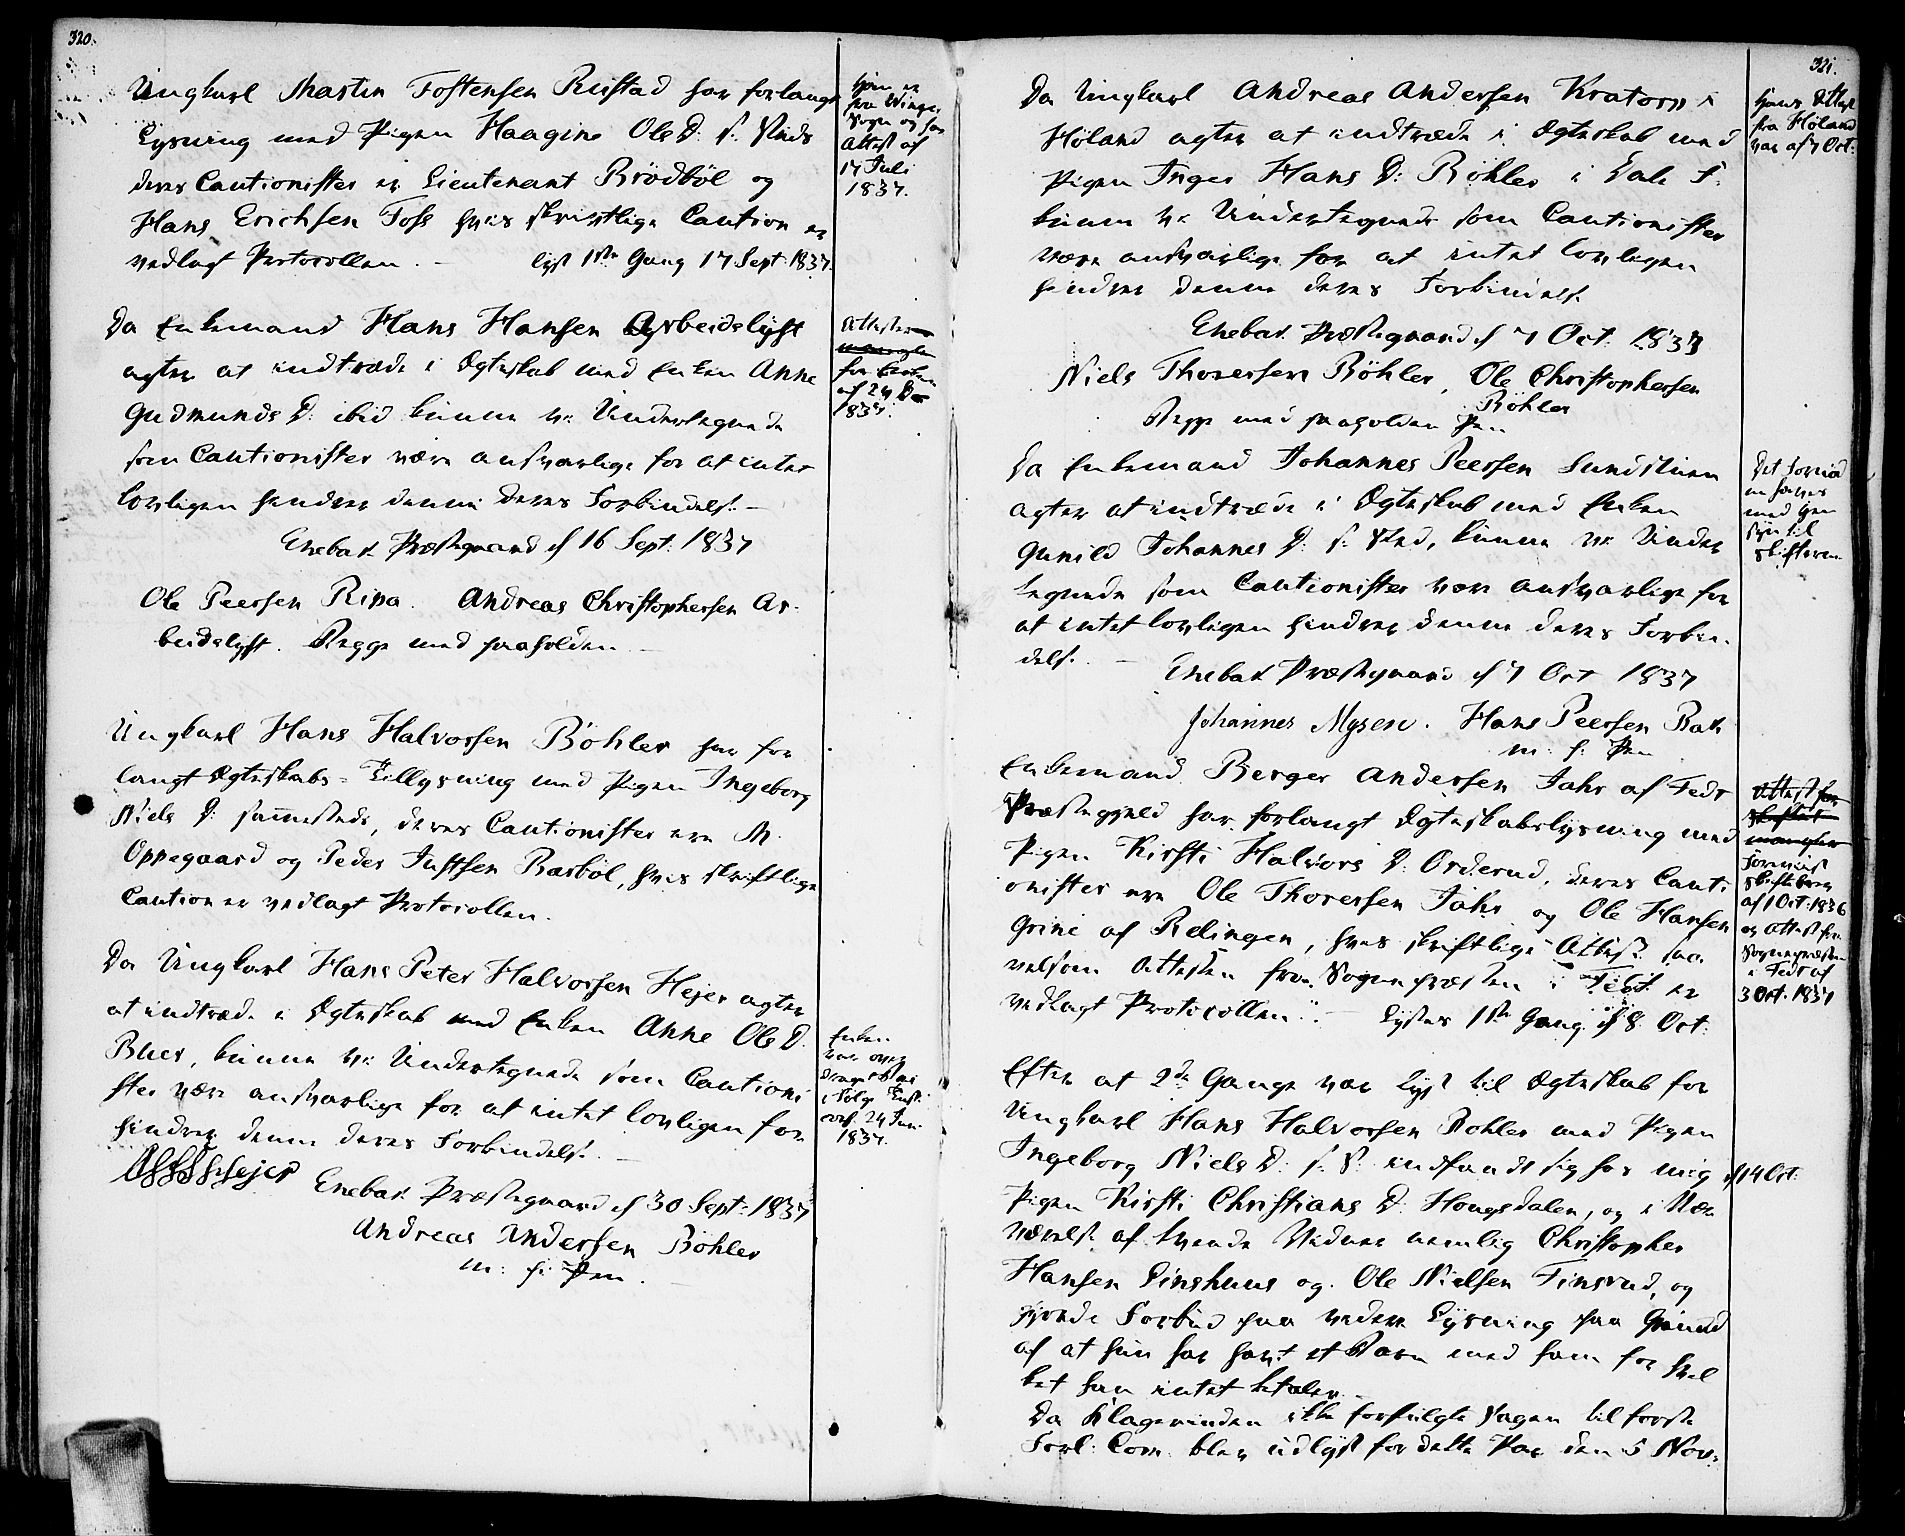 320.
Ungkarl Martin Tostensen Rustad har forlangt
Lysning med Pigen Haagine Ole D: s. Steds
deres Cautionister er Lieutenant Brödböl og
Hans Erichsen Foss hvis skriftlige Caution er
vedlagt Protocollen. — lyst 1ste Gang 17 Sept: 1837.
fra Winger
Sogn og har
Attest af
17 Juli
1837.
Da Enkemand Hans Hansen Arbeidslyst
agter at indtræde i Ægteskab med Enken Anne
Gudmunds D: ibid kunne vi Undertegnede
som Cautionister være ansvarlige for at intet
lovligen hindrer denne deres Forbindelse. —
Enebak Præstegaard d 16 Sept: 1837
Ole Peersen Ripa. Andreas Christophersen Ar-
beidslyst. Begge med paaholden —
Attester
mangler
for Enken
af 24
1837.
Ungkarl Hans Halvorsen Böhler har for
langt Ægteskabs-Tillysning med Pigen Ingeborg
Niels D: sammesteds, deres Cautionister ere M.
Oppegaard og Peder Justsen Bærböl, hvis skriftlige
Caution er vedlagt Protocollen.
Da Ungkarl Hans Peter Halvorsen Hejer agter
at indtræde i Ægteskab med Enken Anne Ole D.
Buer, kunne vi Undertegnede som Cautioni
ster være ansvarlige for at intet lovligen for
hindrer denne deres Forbindelse. —
Enebak Præstegaard d 30 Sept: 1837
Andreas Andersen Böhler
m. f. Pen. —
Enken
var over
draget Boet
i Følge
af 24 Jun.
1837.
321.
Da Ungkarl Andreas Andersen Kratorp i
Höland agter at indtræde i Ægteskab med
Pigen Inger Hans D: Böhler i
kunne vi Undertegnede som Cautionister
være ansvarlige for at intet lovligen
hindrer denne deres Forbindelse.
Enebak Præstegaard d 7 Oct. 1837
Niels Thoresen Böhler, Ole Christophersen
Böhler
Begge med paaholden Pen
Hans Attest
fra Höland
var af 7 Oct:
Da Enkemand Johannes Peersen Sundstuen
agter at indtræde i Ægteskab med Enken
Gunild Johannes D: s. Sted, kunne vi Under
tegnede som Cautionister være ansvarlige for
at intet lovligen hindrer denne deres Forbin-
delse. — Enebak Præstegaard d 7 Oct 1837
Johannes Mysen. Hans Peersen Bak
m. f. Pen
Det
med Hen
syn til
Skifterne
Enkemand Berger Andersen Jahr af Fedt
Præstegjeld har forlangt Ægteskabslysning med
Pigen Kirsti Halvors D: Orderud, deres Cauti
onister ere Ole Thoresen Jahr og Ole Hansen
Grine af Relingen, hvis skriftlige Attest saa
velsom Attesten fra Sognepræsten i Fedt er
vedlagt Protocollen. — Lystes 1ste Gang d 8 Oct:
Attest for
Skiftet
mangler
Forevist
Skiftebrev
af 1 Oct: 1836
og Attest fra
Sognepræsten
i Fedt af
3 Oct. 1837
Efter at 2de Gange var lyst til Ægteskab for
Ungkarl Hans Halvorsen Bohler med Pigen
Ingeborg Niels D: s. S: indfandt sig hos mig d 14 Oct:
Pigen Kirsti Christians D: Hougsdalen, og i Nær
værelse af tvende Vidner nemlig Christopher
Hansen Dinshuus og Ole Nielsen Finsrud, og
gjorde Forbud paa videre Lysning paa Grund
af at hun har havt et Barn med ham for hvil
ket han intet betaler. —
Da Klagerinden ikke forfulgte Sagen til første
Forl: Com: blev udlyst for dette Par den 5 Nov: